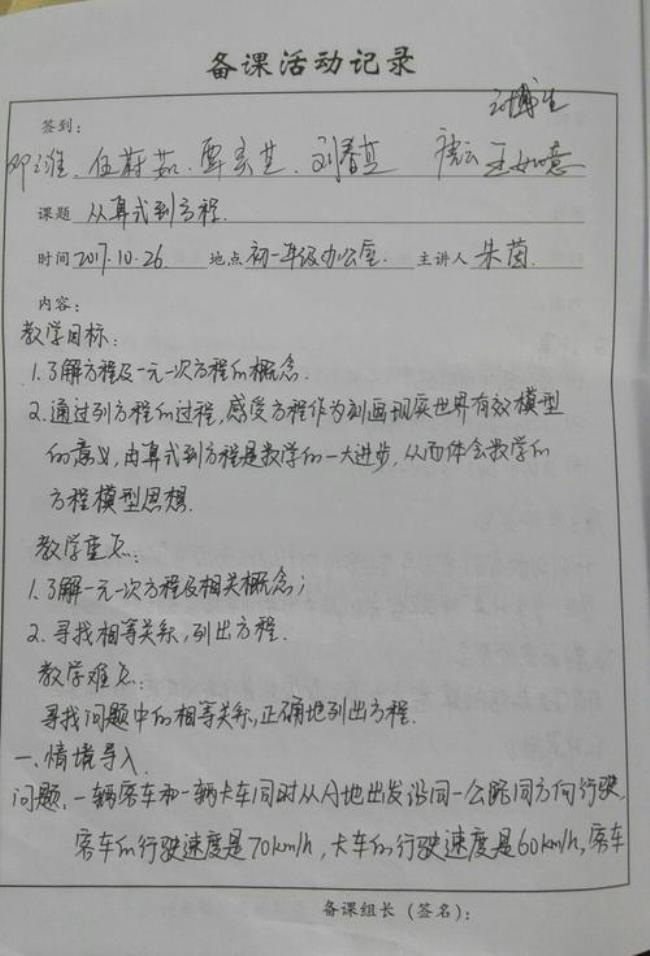 备课活动记录
签到:
伍蔚茹. 覃实芝. 刘春芝 唐云 王如意
课题 从算式到方程.
时间 2017.10.26. 地点 初一年级办公室. 主讲人 朱茵.
内容:
教学目标:
1.了解方程及一元一次方程的概念.
2.通过列方程的过程,感受方程作为刻画现实世界有效模型
的意义,由算式到方程是数学的一大进步,从而体会数学的
方程模型思想.
教学重点:
1.了解一元一次方程及相关概念;
2.寻找相等关系,列出方程.
教学难点:
寻找问题中的相等关系,正确地列出方程.
一、情境导入.
问题.一辆客车和一辆卡车同时从A地出发沿同一公路同方向行驶.
客车的行驶速度是70km/h,卡车的行驶速度是60km/h,客车
备课组长(签名):